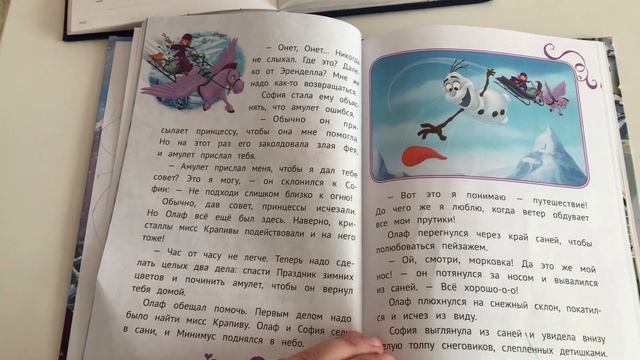 — Онет, Онет... Никогда
не слыхал. Где это? Дале-
ко от Эренделла? Мне же
надо как-то возвращаться.
София стала ему объяс-
нять, что амулет ошибся.
— Обычно он при-
сылает принцессу, чтобы она мне помогла.
Но на этот раз его заколдовала злая фея,
и амулет прислал тебя.
— Амулет прислал меня, чтобы я дал тебе
совет? Это я могу, — он склонился к Со-
фии: — Не подходи слишком близко к огню!
Обычно, дав совет, принцессы исчезали.
Но Олаф всё ещё был здесь. Наверно, кри-
сталлы мисс Крапивы подействовали и на него
тоже!
— Час от часу не легче. Теперь надо сде-
лать целых два дела: спасти Праздник зимних
цветов и починить амулет, чтобы он вернул
тебя домой.
Олаф обещал помочь. Первым делом надо
было найти мисс Крапиву. Олаф и София сели
в сани, и Минимус поднялся в небо.
— Вот это я понимаю — путешествие!
До чего же я люблю, когда ветер обдувает
все мои прутики!
Олаф перегнулся через край саней, чтобы
полюбоваться пейзажем.
— Ой, смотри, морковка! Да это же мой
нос! — он потянулся за носом и вывалился
из саней. — Всё хорошо-о-о!
Олаф плюхнулся на снежный склон, покатил-
ся и исчез из виду.
София выглянула из саней и увидела внизу
целую толпу снеговиков, слепленных детишками.